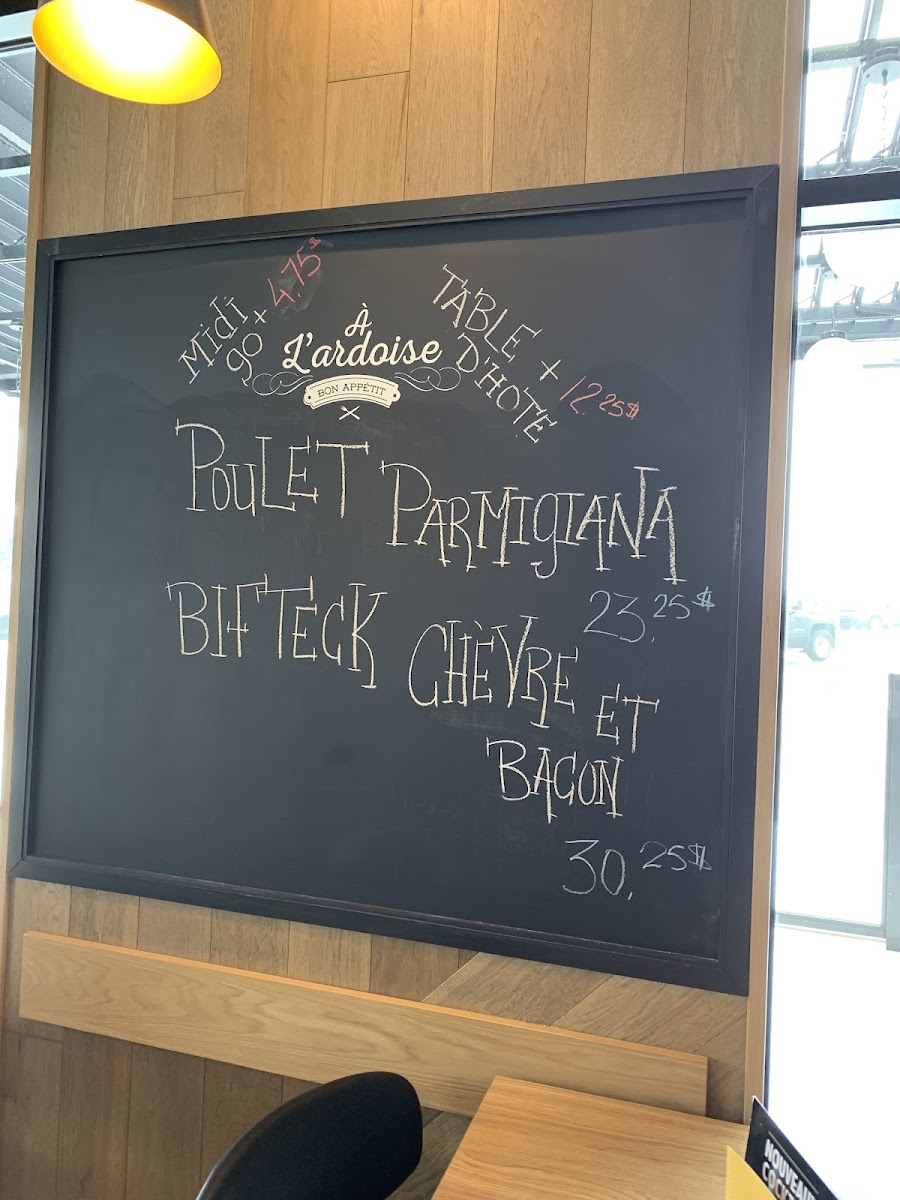 Midi
go + 4,75$
À
L'ardoise
BON APPÉTIT
TABLE
D'HOTE + 12.25$
POULET PARMIGIANA
23,25$
BIFTECK CHÈVRE
ET
BACON
30,25$
NOUVEAU